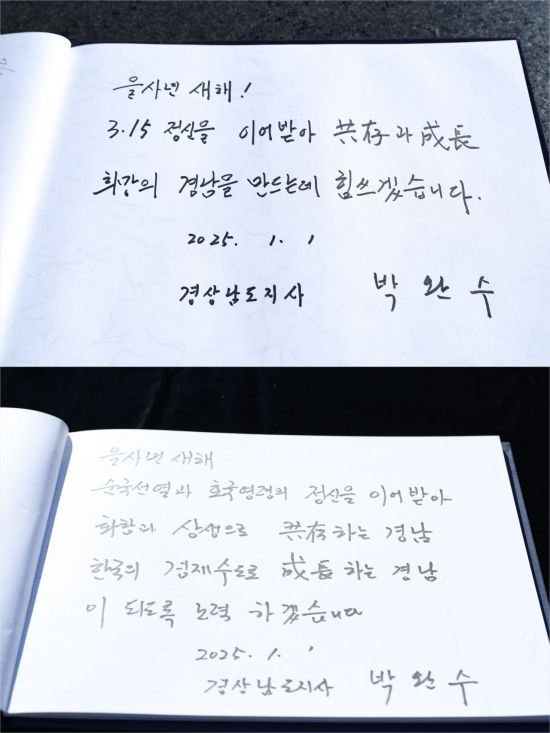 을사년 새해!
3.15 정신을 이어받아 共存과 成長
최강의 경남을 만드는데 힘쓰겠습니다.
2025. 1. 1
경상남도지사 박 완 수
을사년 새해
순국선열과 호국영령의 정신을 이어받아
화합과 상생으로 共存하는 경남
한국의 경제수도로 成長하는 경남
이 되도록 노력 하겠습니다
2025. 1. 1
경상남도지사 박 완 수